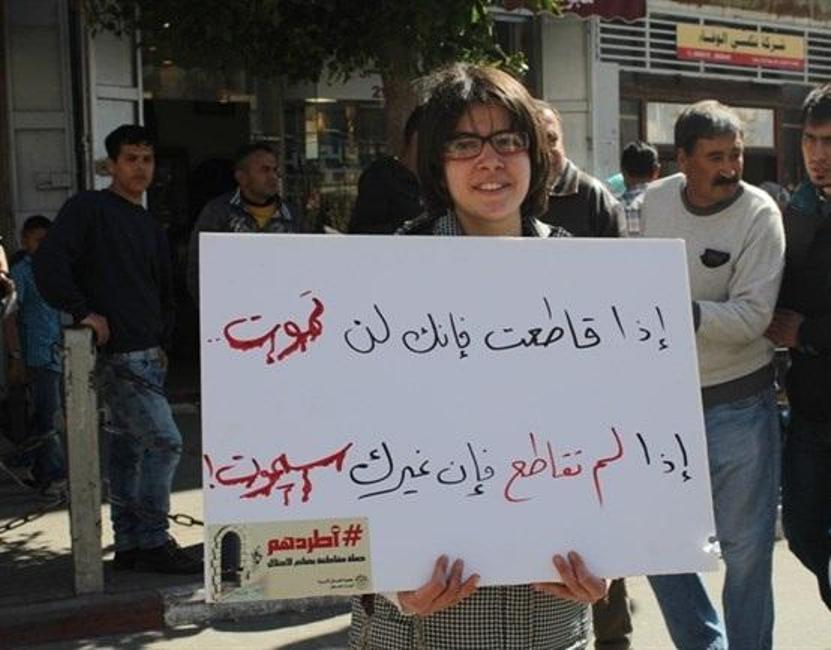 شركة تكسي الوفاء
إذا قاطعت فإنك لن تموت..
إذا لم تقاطع فإن غيرك سيموت!
#أطردهم
حملة مقاطعة بضائع الاحتلال